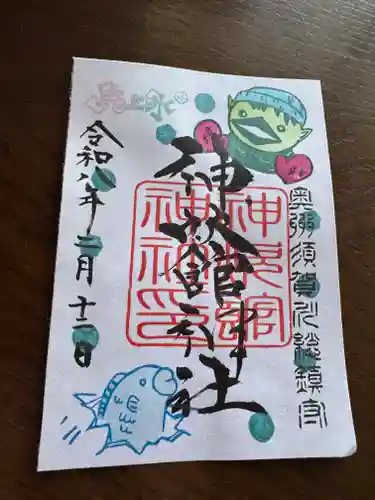 奥州須賀川総鎮守
神炊館神社
神炊館
神社印
令和八年二月十二日